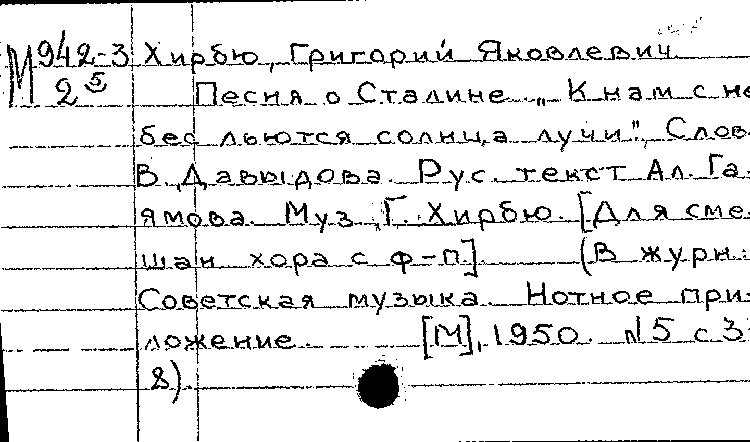 М 942-3 Хирбю, Григорий Яковлевич
2 5 Песня о Сталине. „К нам с не
бес льются солнца лучи". Слов
В. Давыдова. Рус. текст Ал. Га
ямова. Муз. Г. Хирбю. [Для сме
шан хора с ф-п] (В журн:
Советская музыка. Нотное при
ложение. [М], 1950. №5 с 3-
8).